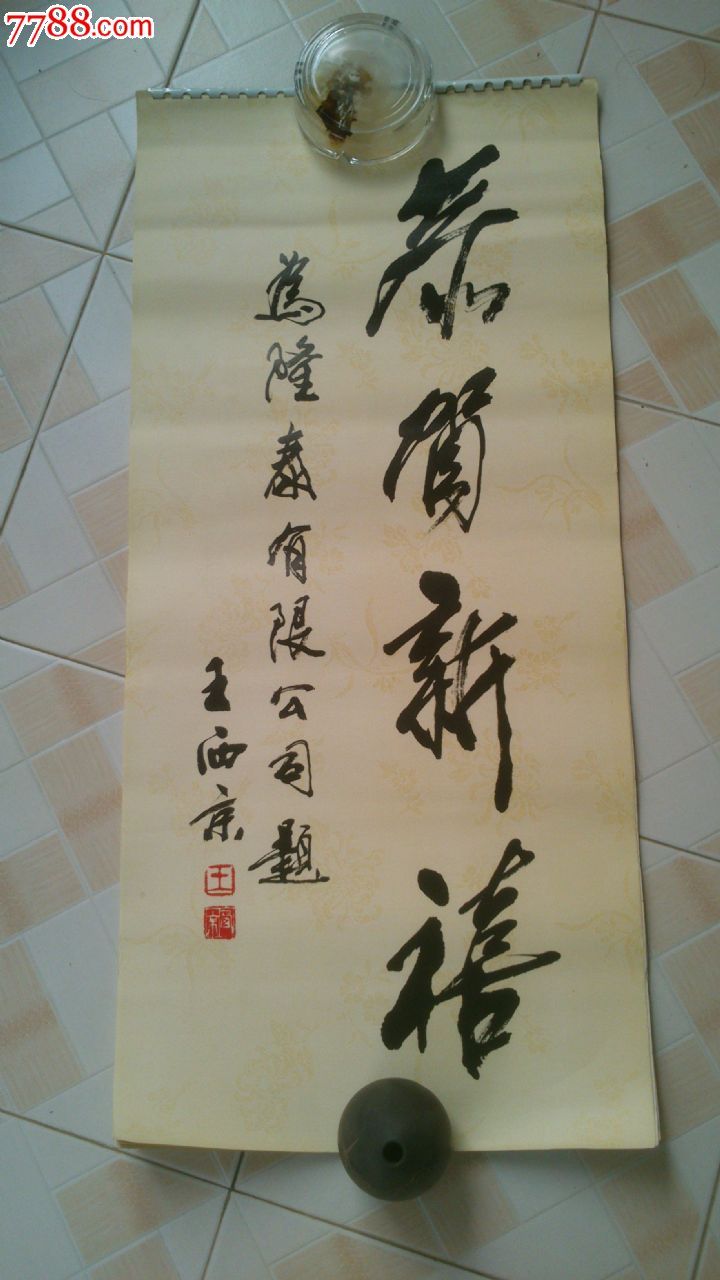 7788.com
恭賀新禧
為隆泰有限公司題
王西京
王
西京